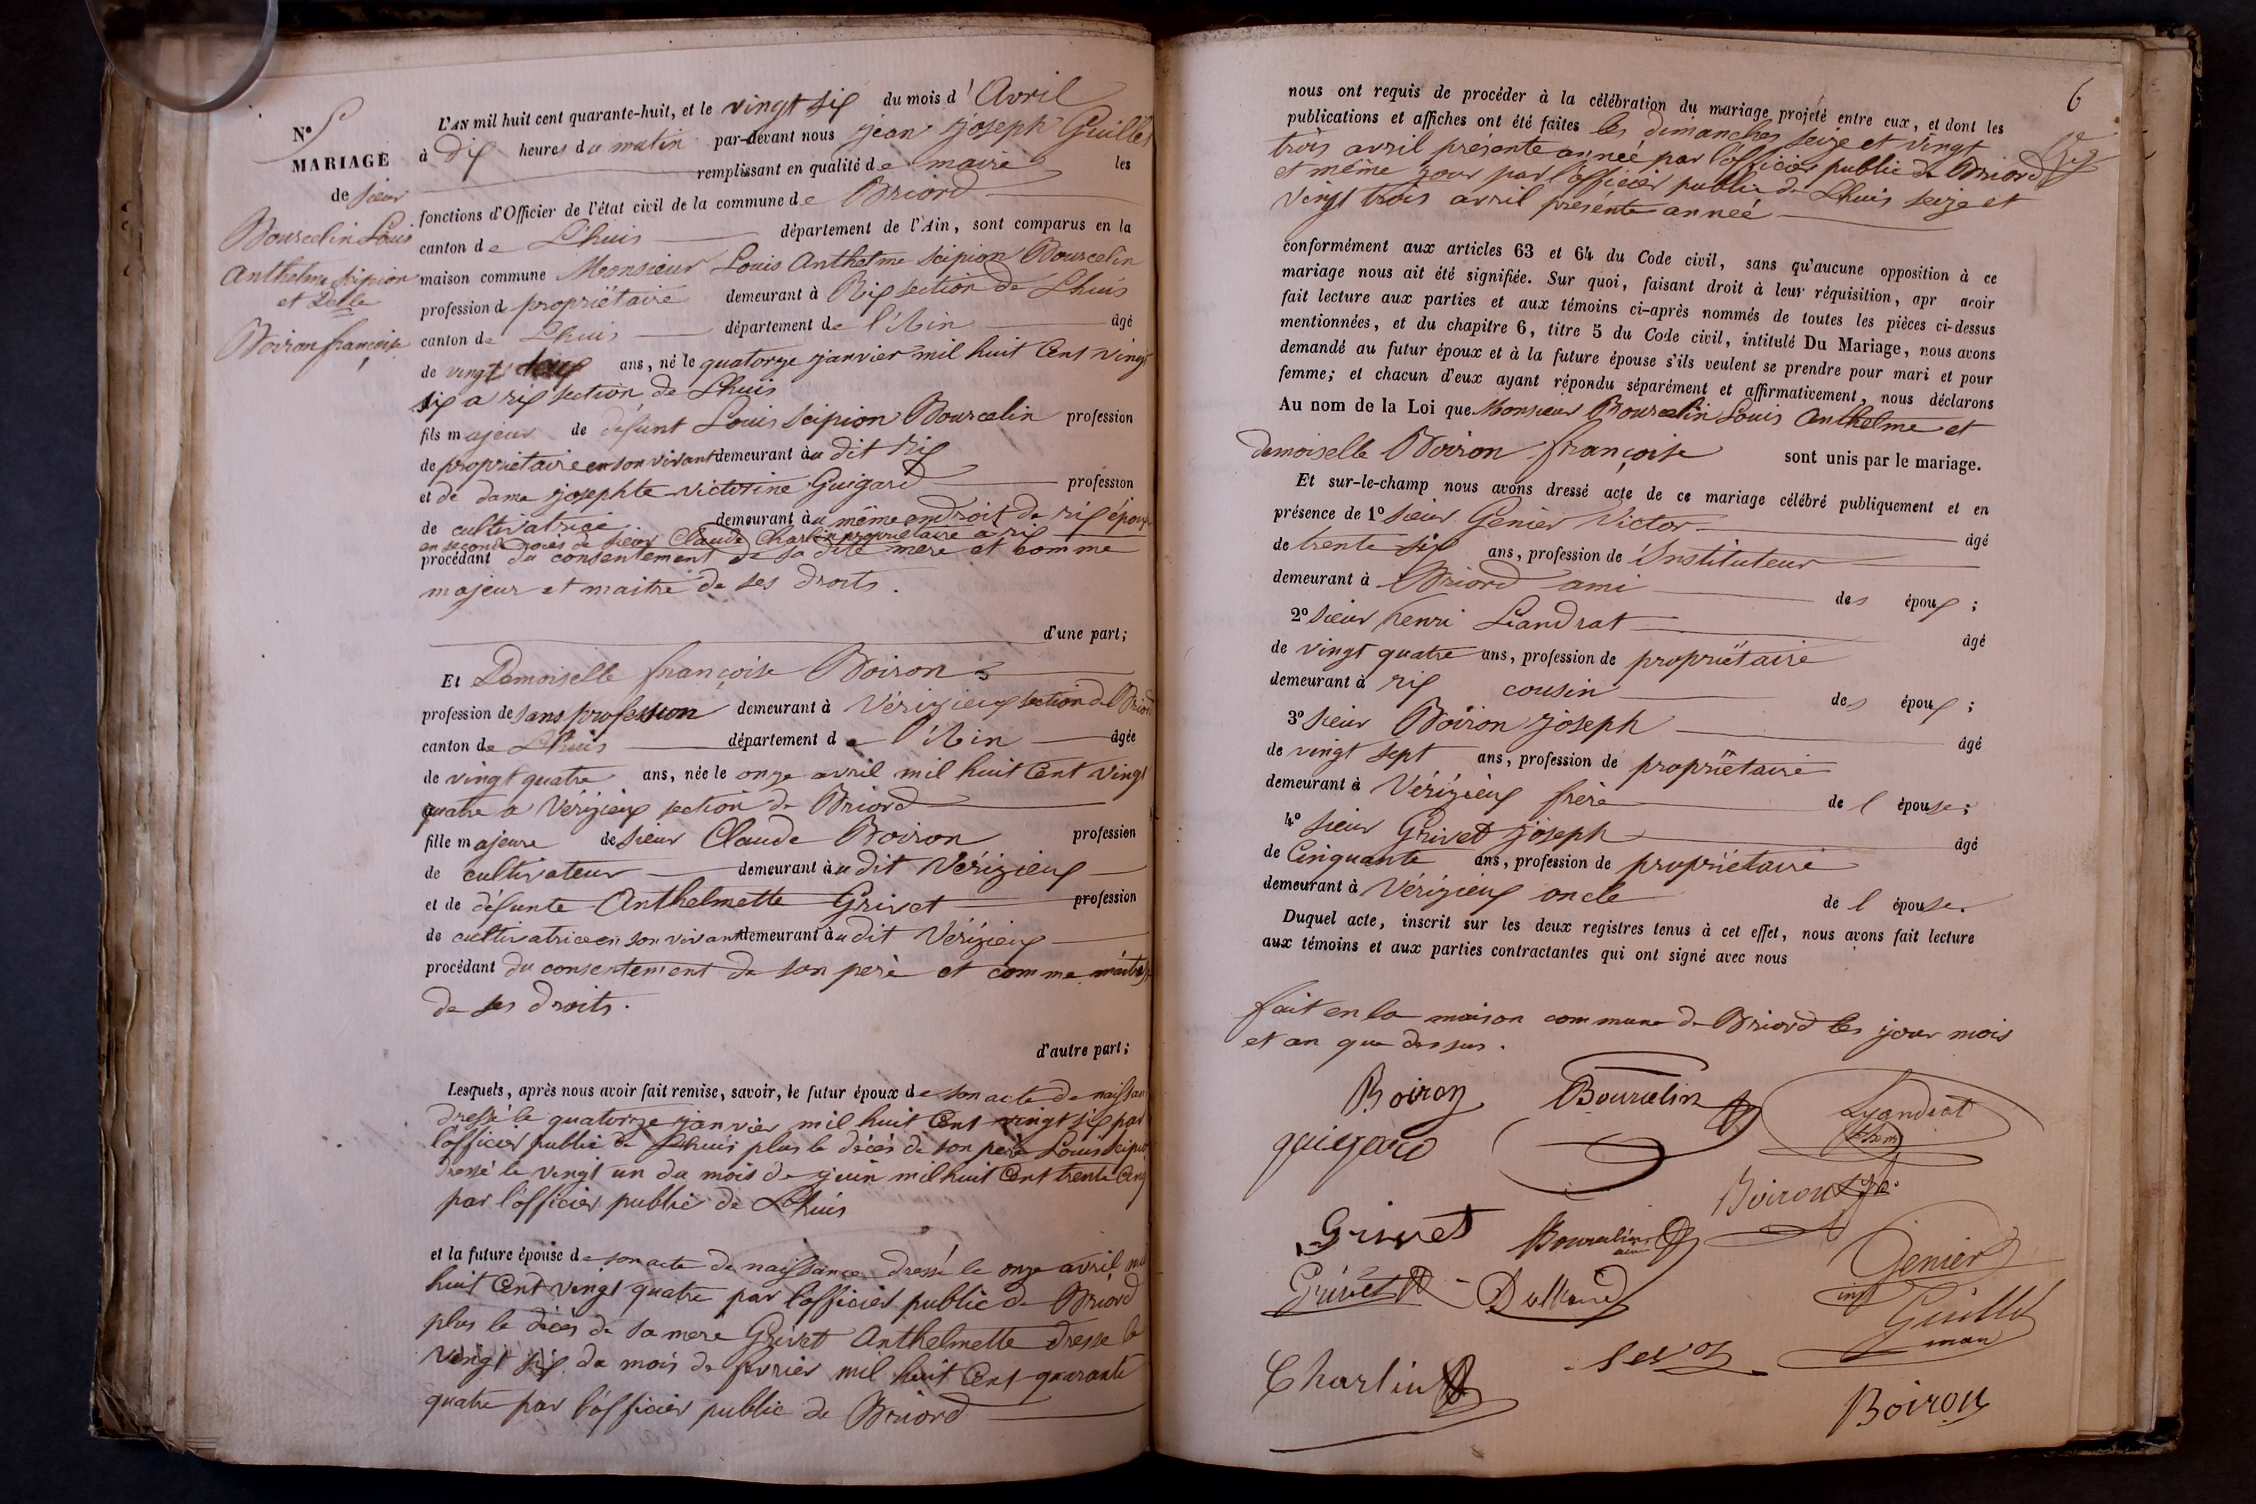 N° 5
MARIAGE
de sieur
Bourcelin Louis
Anthelme Scipion
et Delle
Boiron françoise
L'AN mil huit cent quarante-huit, et le vingt six du mois d' Avril
à Dix heures du matin par-devant nous jean joseph Guillet
remplissant en qualité de maire les
fonctions d'Officier de l'état civil de la commune de Briord
canton de Lhuis département de l'Ain, sont comparus en la
maison commune Monsieur Louis Anthelme Scipion Bourcelin
profession de propriétaire demeurant à Rix section de Lhuis
canton de Lhuis département de l'Ain âgé
de vingt deux ans, né le quatorze janvier mil huit Cent vingt
six a rix section de Lhuis
fils majeur de défunt Louis Scipion Bourcelin profession
de propriétaire en son vivant demeurant au dit rix
et de dame josephte victorine Guigard profession
de cultivatrice demeurant au même endroit de rix épouse
en seconde noces de sieur Claude Charlin propriétaire a rix
procédant du consentement de sa dite mere et comme
majeur et maitre de ses droits.
d'une part;
Et Demoiselle françoise Boiron
profession de sans profession demeurant à Vérizieux section de Briord
canton de Lhuis département de l'Ain âgée
de vingt quatre ans, née le onze avril mil huit Cent vingt
quatre a Vérizieux section de Briord
fille majeure de sieur Claude Boiron profession
de cultivateur demeurant au dit Vérizieux
et de défunte Anthelmette Grivet profession
de cultivatrice en son vivant demeurant au dit Vérizieux
procédant du consentement de son perè et comme maitresse
de ses droits.
d'autre part;
Lesquels, après nous avoir fait remise, savoir, le futur époux de son acte de naissance
dressé le quatorze janvier mil huit Cent vingt six par
l'officier public de Lhuis plus le décès de son perè Louis Scipion
dressé le vingt un du mois de juin mil huit Cent trente Cinq
par l'officier public de Lhuis
et la future épouse de son acte de naissance dressé le onze avril mil
huit Cent vingt quatre par l'officier public de Briord
plus le décès de sa mere Grivet Anthelmette dresse le
vingt six du mois de fevrier mil huit Cent quarante
quatre par l'officier public de Briord
6
nous ont requis de procéder à la célébration du mariage projeté entre eux, et dont les
publications et affiches ont été faites les dimanches seize et vingt
trois avril présente année par l'officier public de Briord
et même jour par l'officier public de Lhuis seize et
vingt trois avril présente année
conformément aux articles 63 et 64 du Code civil, sans qu'aucune opposition à ce
mariage nous ait été signifiée. Sur quoi, faisant droit à leur réquisition, apr avoir
fait lecture aux parties et aux témoins ci-après nommés de toutes les pièces ci-dessus
mentionnées, et du chapitre 6, titre 5 du Code civil, intitulé Du Mariage, nous avons
demandé au futur époux et à la future épouse s'ils veulent se prendre pour mari et pour
femme; et chacun d'eux ayant répondu séparément et affirmativement, nous déclarons
Au nom de la Loi que Monsieur Bourcelin Louis Anthelme et
demoiselle Boiron françoise sont unis par le mariage.
Et sur-le-champ nous avons dressé acte de ce mariage célébré publiquement et en
présence de 1° sieur Genier Victor âgé
de trente six ans, profession de Instituteur
demeurant à Briord ami des époux;
2° sieur henri Liandrat âgé
de vingt quatre ans, profession de propriétaire
demeurant à rix cousin des époux;
3° sieur Boiron joseph âgé
de vingt sept ans, profession de propriétaire
demeurant à Vérizieux frère de l épouse;
4° sieur Grivet joseph âgé
de Cinquante ans, profession de propriétaire
demeurant à Vérizieux oncle de l épouse.
Duquel acte, inscrit sur les deux registres tenus à cet effet, nous avons fait lecture
aux témoins et aux parties contractantes qui ont signé avec nous
fait en la maison commune de Briord les jour mois
et an que dessus.
Boiron Bourcelin Lyandrat
guigard
Boiron
Grivet Bourcelin Genier
Grivet
Guillet
maire
Charlin
Boiron